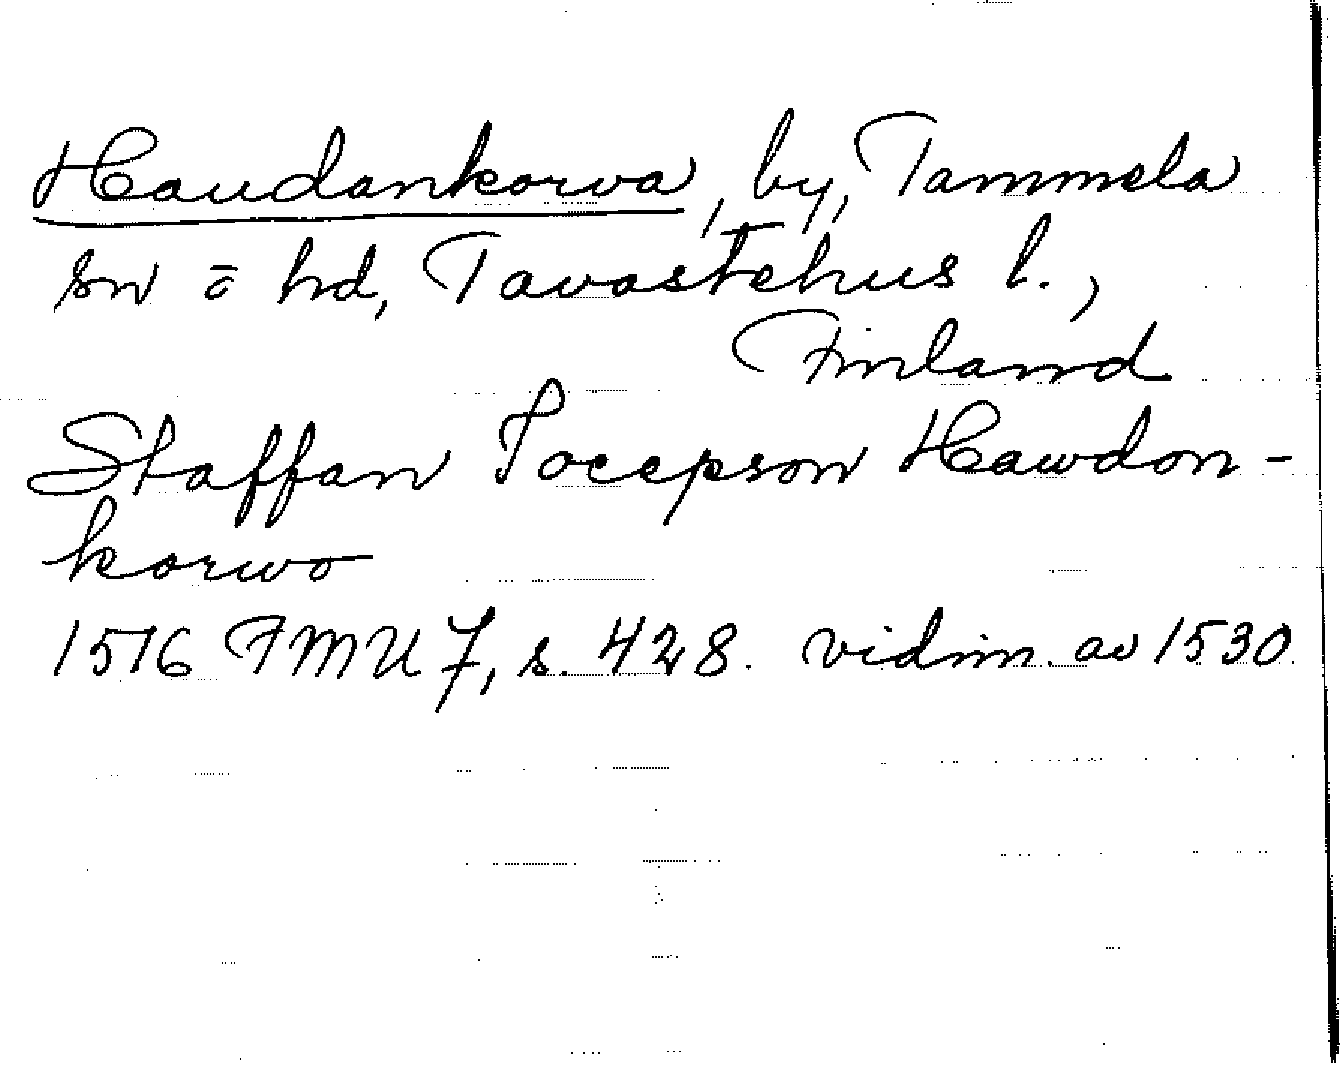 Haudankorva, by, Tammela
sn o hd, Tavastehus l.,
Finland
Staffan Jocepson Hawdon-
korwo
1516 FMU 7, s. 428. vidim. av 1530